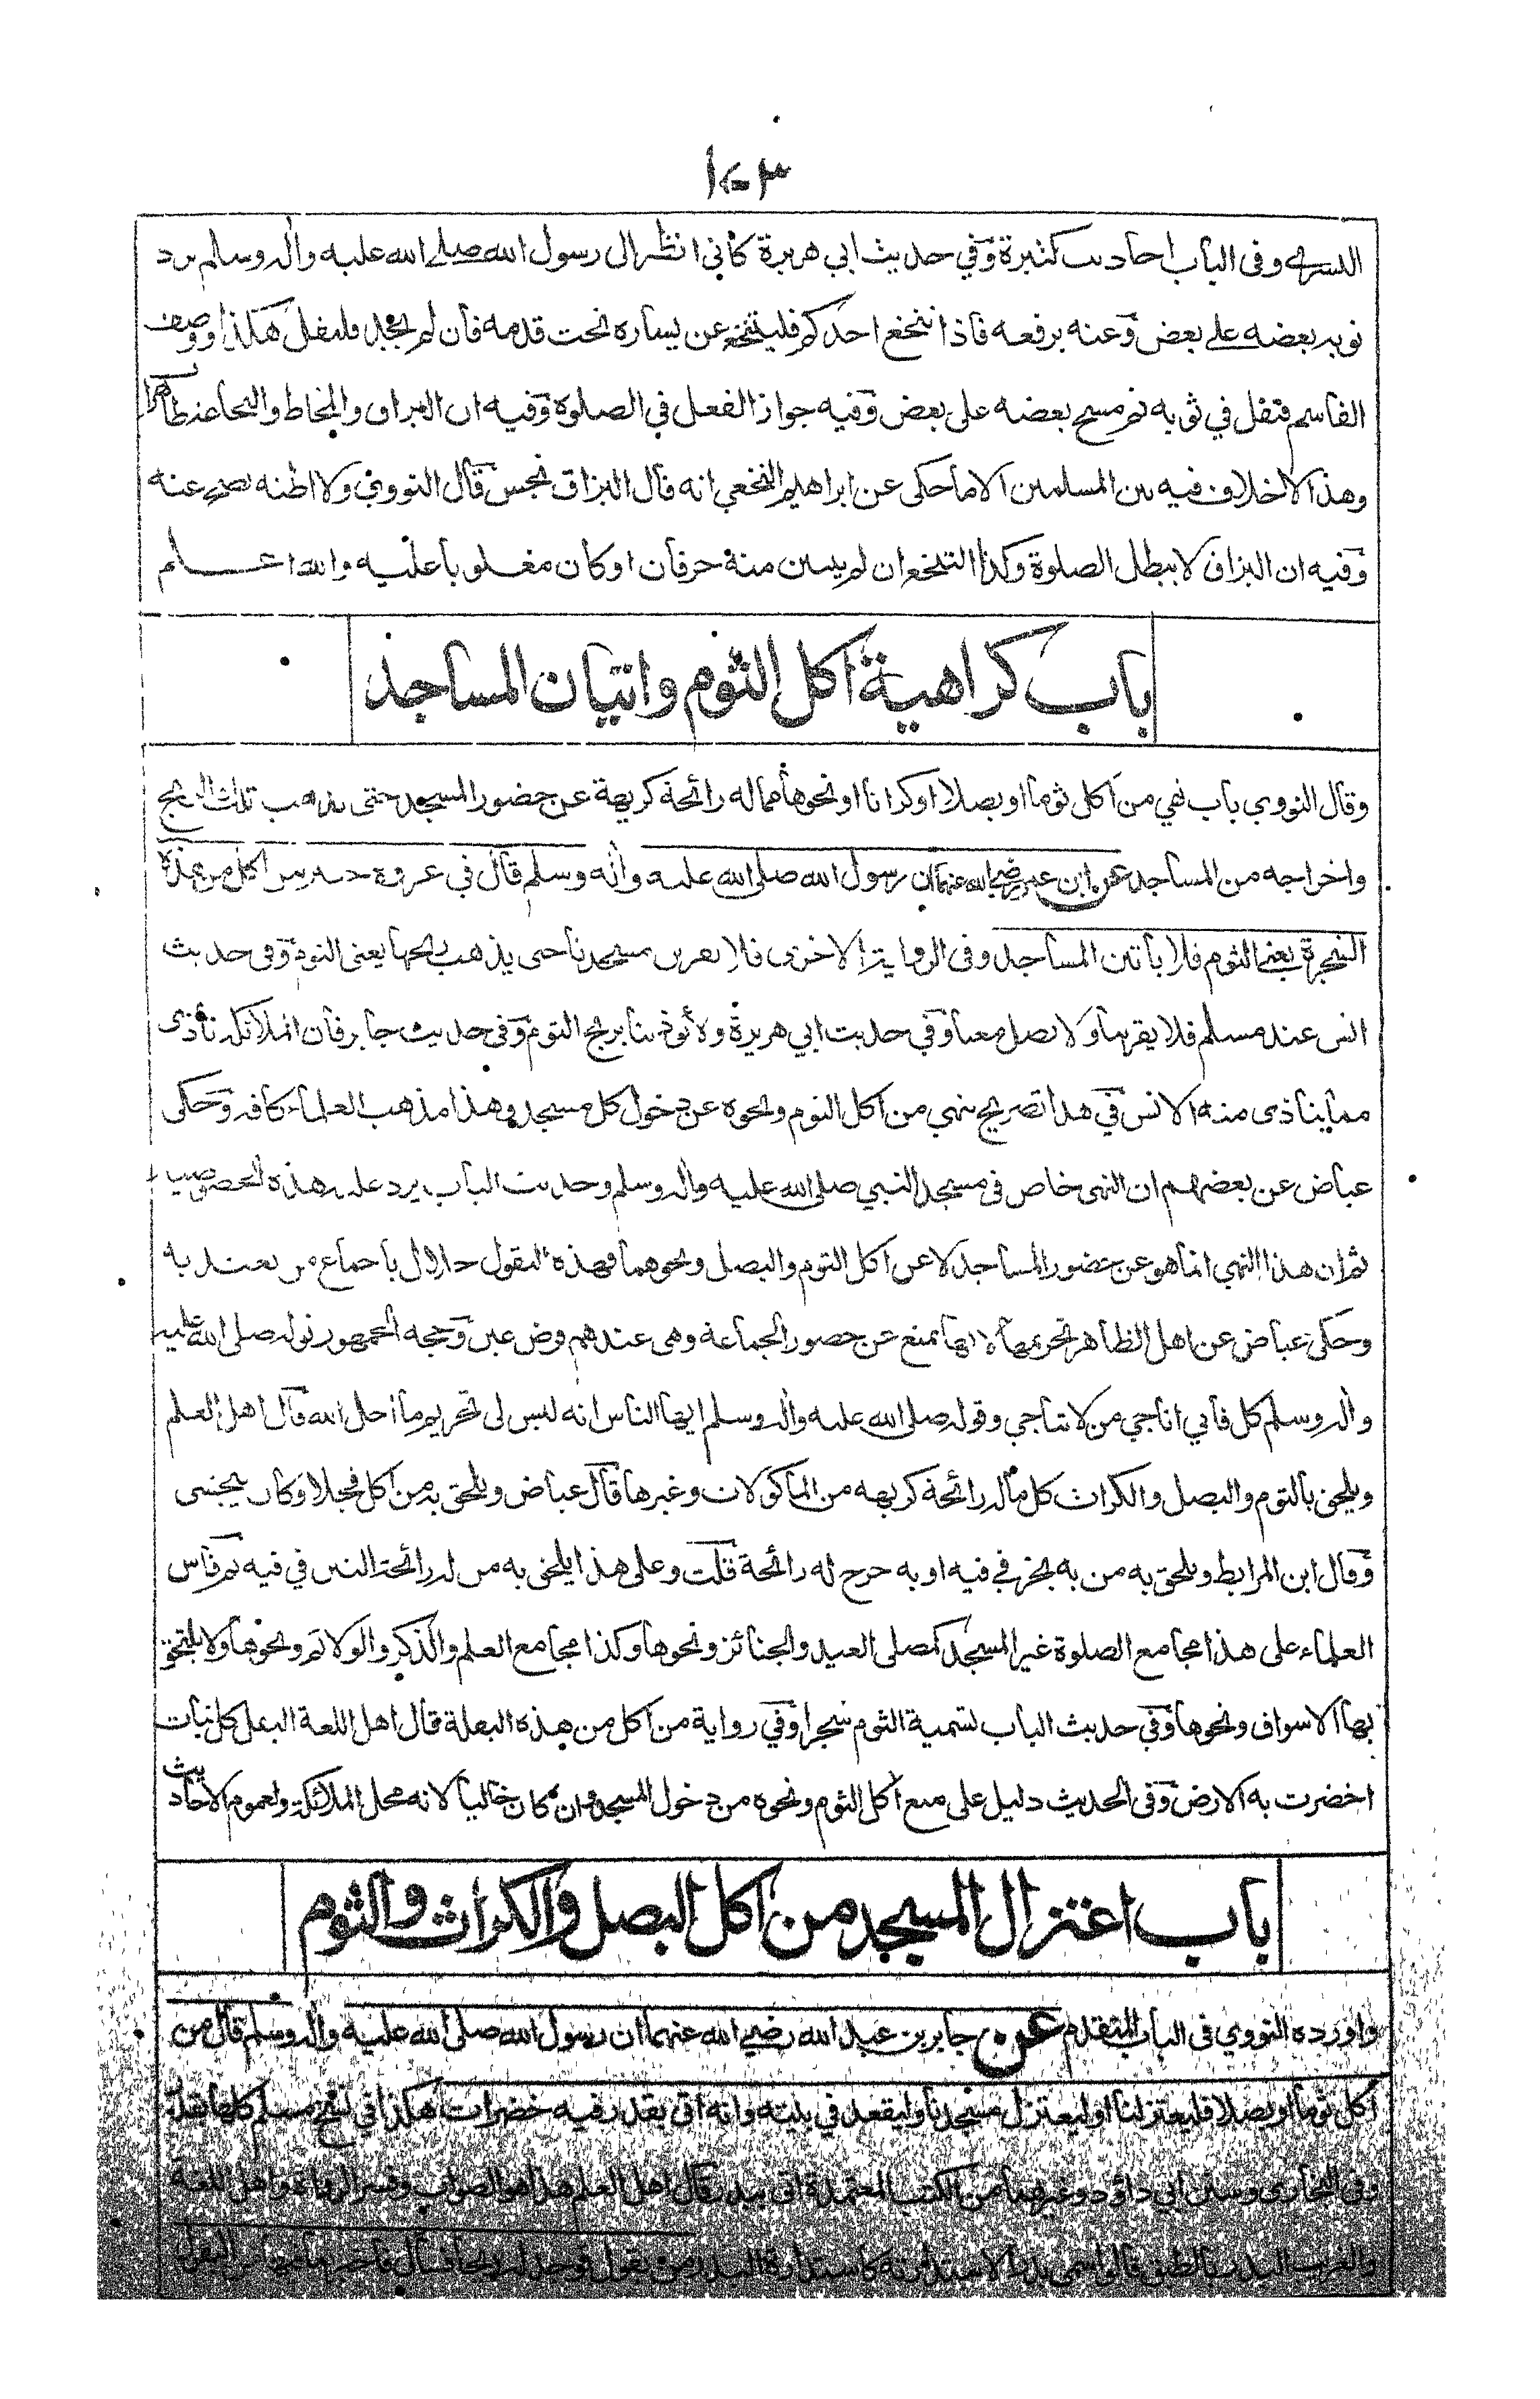 ١٠٣
اليسرى وفي الباب احاديث كثيرة وفي حديث ابي هريرة كأني انظر الى رسول الله صلى الله عليه وأله وسلم يرد
ثوبه بعضه على بعض وعنه يرفعه فاذا تنخع احدكم فليتنخع عن يساره تحت قدمه فأن لم يجد فليفل هكذا ووصف
القاسم فتفل في ثوبه ثم مسح بعضه على بعض وفيه جواز الفعل في الصلوة وفيه ان البزاق والمخاط والنخاعة طاهرات
وهذا لاخلاف فيه بين المسلمين الا ما حكى عن ابراهيم النخعي انه قال البزاق نجس قال النووي ولا اظنه يصح عنه
وفيه ان البزاق لا يبطل الصلوة وكذا التنخع ان لم يتبين منه حرفان او كان مغلوبا عليه والله اعلم
باب كراهية اكل الثوم واتيان المساجد
وقال النووي باب نهي من اكل ثوما او بصلا او كراثا او نحوها مما له رائحة كريهة عن حضور المسجد حتى يذهب تلك الريح
واخراجه من المساجد عن ابن عمر رضي الله عنهما ان رسول الله صلى الله عليه وأله وسلم قال في غزوة خيبر من اكل من هذه
الشجرة يعني الثوم فلا يأتين المساجد وفي الرواية الاخرى فلا يقربن مسجدنا حتى يذهب ريحها يعني الثوم وفي حديث
انس عند مسلم فلا يقربنا ولا يصل معنا وفي حديث ابي هريرة ولا يؤذينا بريح الثوم وفي حديث جابر فأن الملائكة تأذى
مما يتأذى منه الانس في هذا تصريح بنهي من اكل الثوم ونحوه عن دخول كل مسجد وهذا مذهب العلماء كافة وحكى
عياض عن بعضهم ان النهي خاص في مسجد النبي صلى الله عليه وأله وسلم وحديث الباب يرد عليه هذه الخصوصية
ثم ان هذا النهي انما هو عن حضور المساجد لا عن اكل الثوم والبصل ونحوهما فهذه البقول حلال باجماع من يعتد به
وحكى عياض عن اهل الظاهر تحريمها لانها تمنع عن حضور الجماعة وهي عندهم فرض عين وحجة الجمهور قوله صلى الله عليه
وأله وسلم كل فأني اناجي من لا تناجي وقوله صلى الله عليه وأله وسلم ايها الناس انه ليس لي تحريم ما احل الله قال اهل العلم
ويلحق بالثوم والبصل والكراث كل ماله رائحة كريهة من المأكولات وغيرها قال عياض ويلحق به من اكل فجلا وكان يتجشى
وقال ابن المرابط ويلحق به من به بخر في فيه او به جرح له رائحة قلت وعلى هذا يلحق به من له رائحة التتن في فيه ثم قاس
العلماء على هذا مجامع الصلوة غير المسجد كمصلى العيد والجنائز ونحوها وكذا مجامع العلم والذكر والولائم ونحوها ولا يلتحق
بها الاسواق ونحوها وفي حديث الباب تسمية الثوم شجرا وفي رواية من اكل من هذه البقلة قال اهل اللغة البقل كل نبات
اخضرت به الارض وفي الحديث دليل على منع اكل الثوم ونحوه من دخول المسجد وان كان خاليا لانه محل الملائكة ولعموم الاحاديث
باب اعتزال المسجد من اكل البصل والكراث والثوم
واورده النووي في الباب المتقدم عن جابر بن عبد الله رضي الله عنهما ان رسول الله صلى الله عليه وأله وسلم قال من
اكل ثوما او بصلا فليعتزلنا او ليعتزل مسجدنا وليقعد في بيته وانه اتي بقدر فيه خضرات هكذا في نسخ مسلم كلها بقدر
وفي البخاري وسنن ابي داؤد وغيرهما من الكتب المعتمدة اتي ببدر قال اهل العلم هذا هو الصواب وفسر الرواة واهل اللغة
والغريب البدر بالطبق قالوا سمي بدرا لاستدارته كاستدارة البدر من بقول فوجد لها ريحا فسأل فاخبر بما فيها من البقول